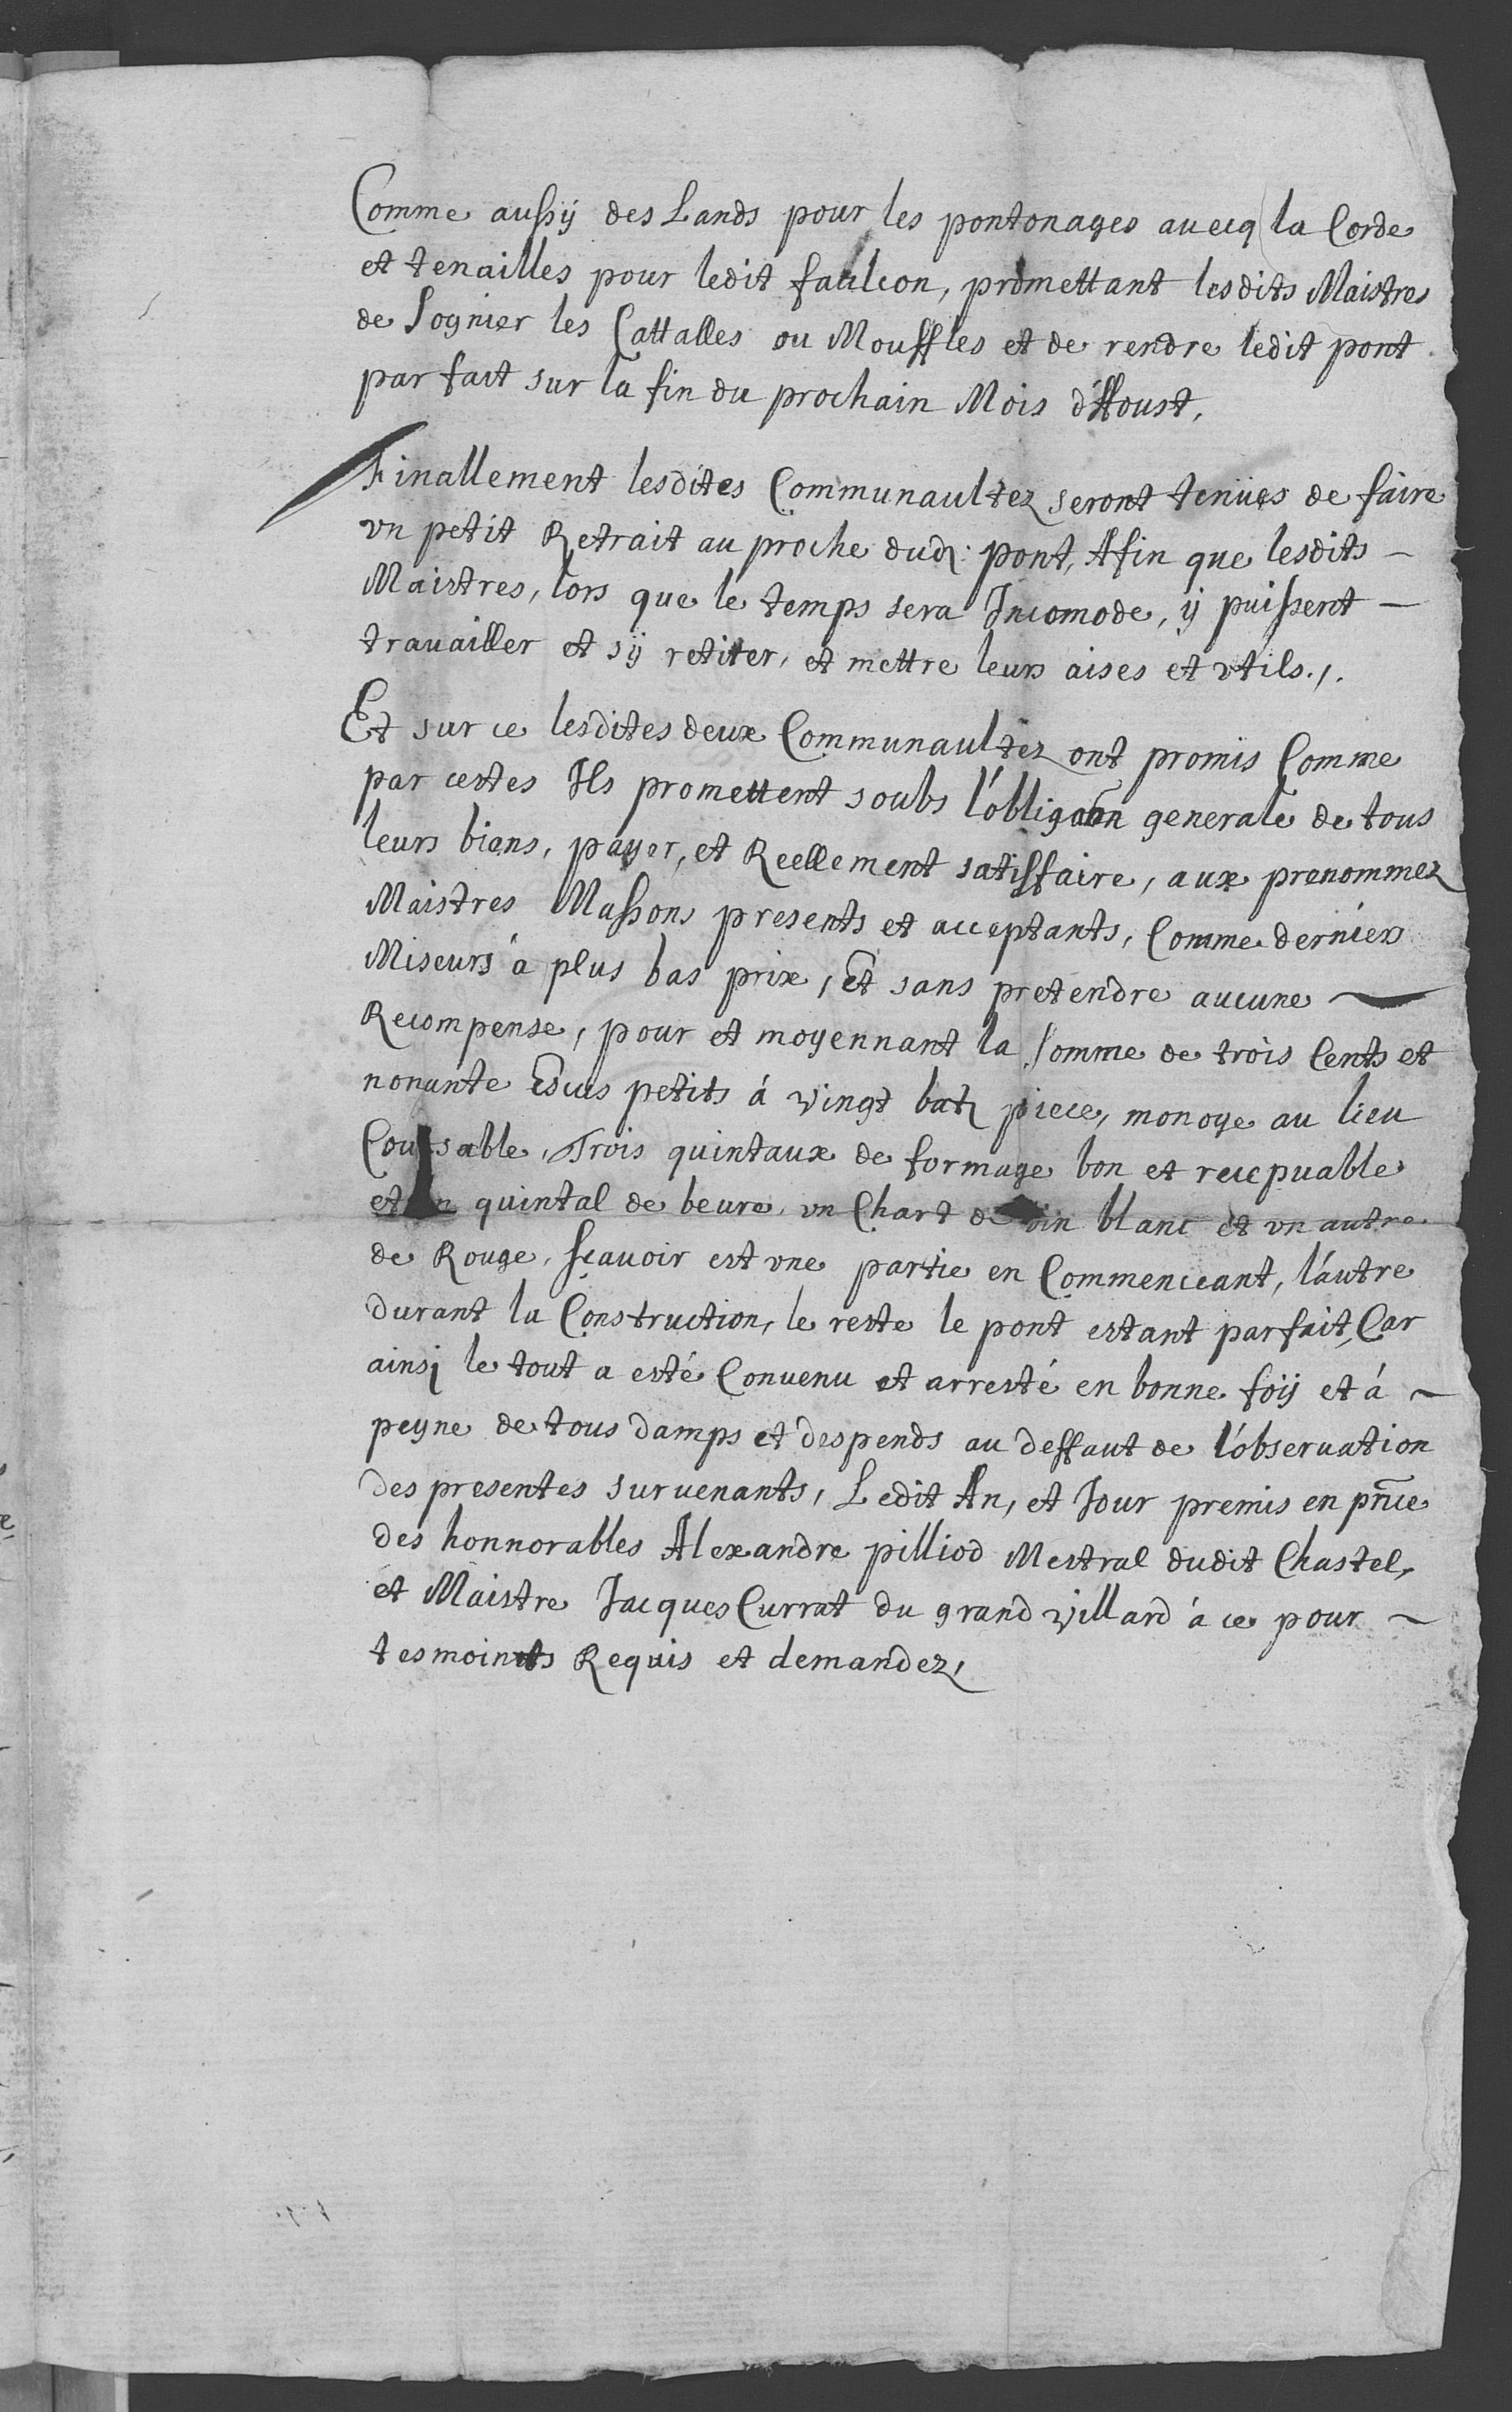 Comme aussÿ des Lands pour les pontonages auecq la Corde
et tenailles pour ledit faulcon, promettant lesdits Maistres
de Sognier les Cattalles ou Mouffles et de rendre ledit pont
parfait sur la fin du prochain Mois d'Aoust.
Finallement lesdites Communaultez seront tenües de faire
vn petit Retrait au proche dud: pont, Afin que lesdits –
Maistres, lors que le temps sera Incomode, ÿ puissent –
trauailler et sÿ retirer, et mettre leurs aises et vtils./.
Et sur ce lesdites deux Communaultez ont promis Comme
par cestes Ils promettent soubs l'obligaon generale de tous
leurs biens, payer, et Reellement satisffaire, aux prenommez
Maistres Massons presents et acceptants, Comme derniers
Miseurs à plus bas prix, Et sans pretendre aucune ~
Recompense, pour et moyennant la Somme de trois Cents et
nonante Escus petits à vingt batz piece, monoye au lieu
Coursable, Trois quintaux de formage bon et recepuable
et un quintal de beure, vn Chart de vin blanc et vn autre
de Rouge, sçauoir est vne partie en Commenceant, l'autre
durant la Construction, le reste le pont estant parfait, Car
ainsi le tout a esté Conuenu et arresté en bonne foÿ et à ~
peyne de tous damps et despends au deffaut de l'obseruation
des presentes suruenants, Ledit An, et Jour premis en pñce
des honnorables Alexandre pilliod Mestral dudit Chastel,
et Maistre Jacques Currat du grand villard à ce pour ~
tesmoints Requis et demandez,